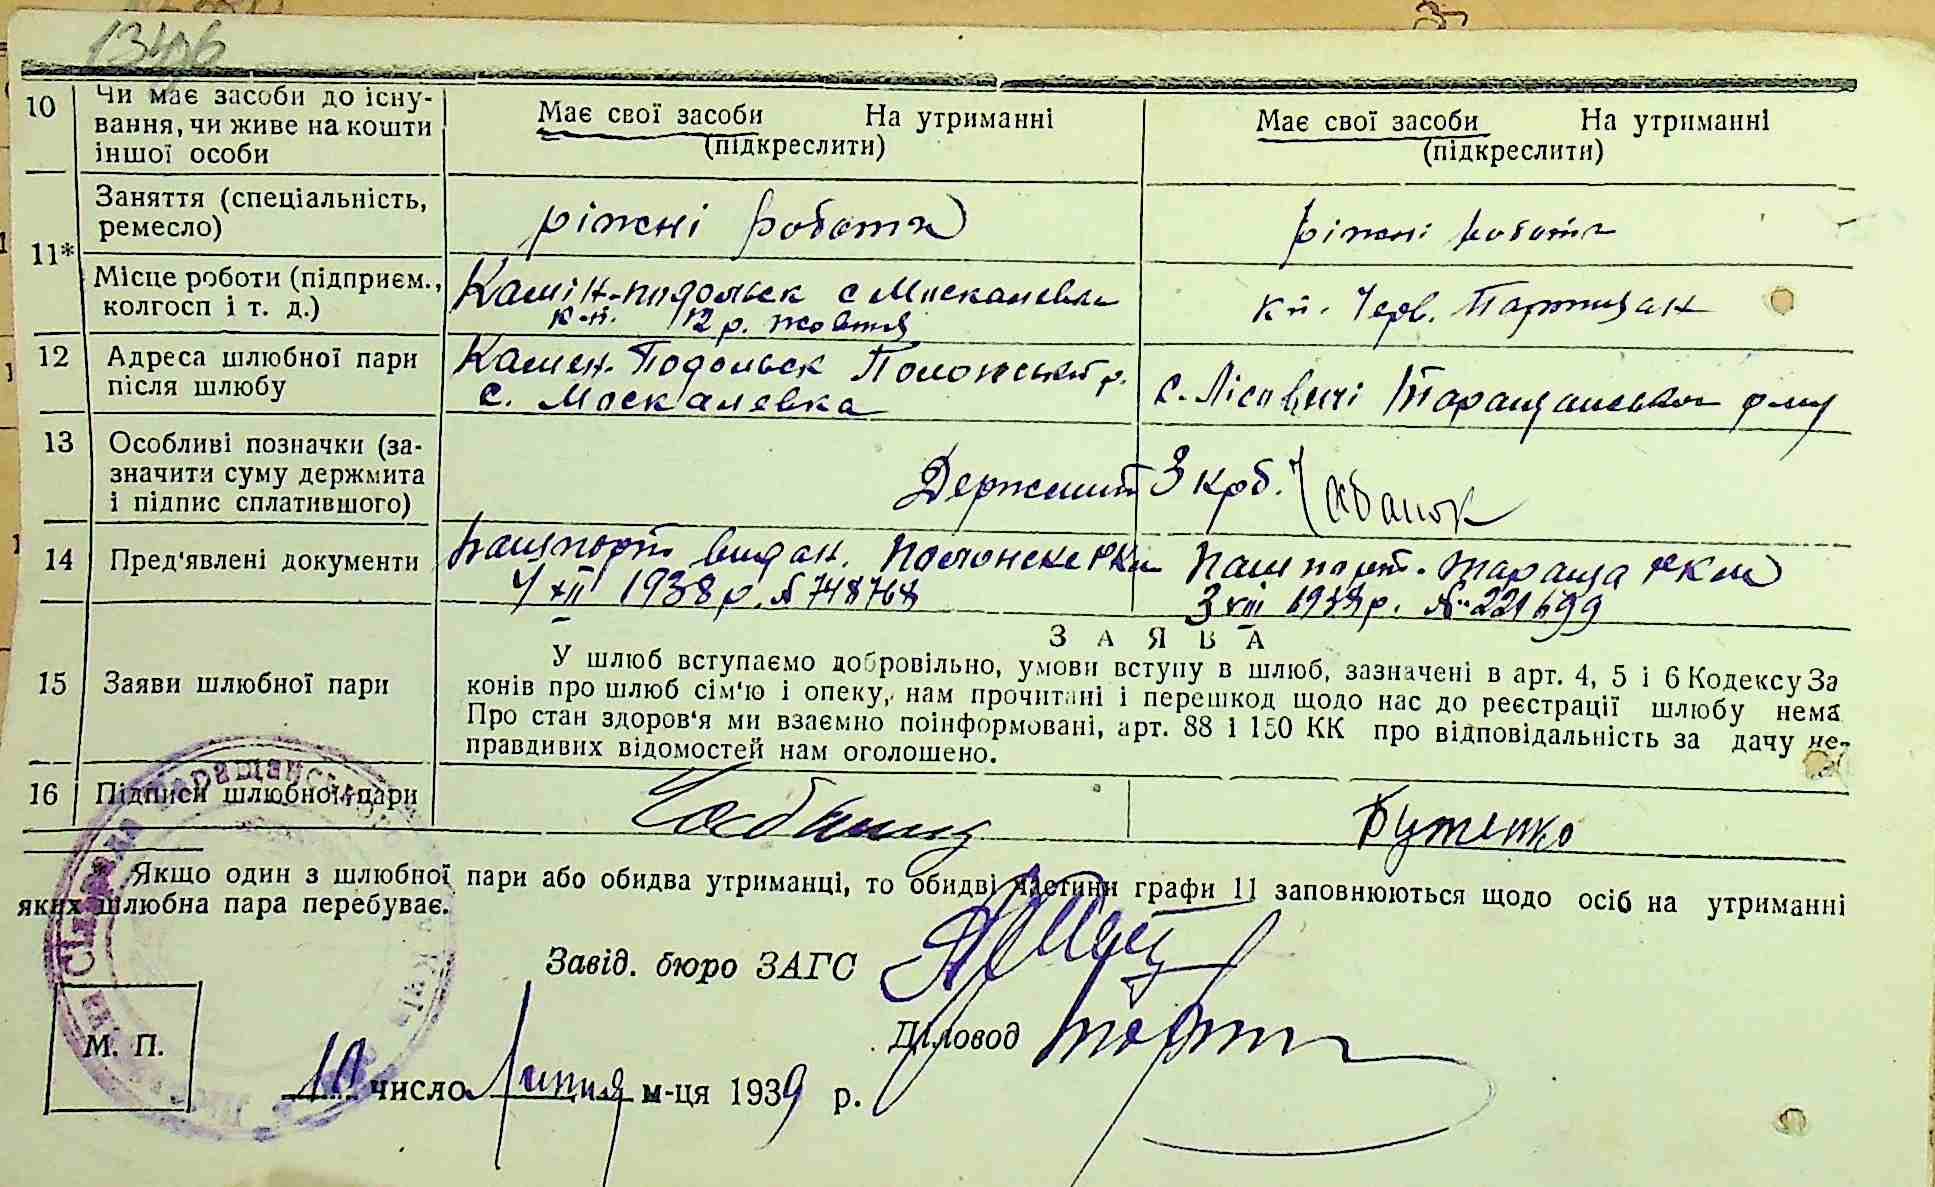 1346
10 Чи має засоби до існу-
вання, чи живе на кошти
іншої особи
Має свої засоби На утриманні
(підкреслити)
Має свої засоби На утриманні
(підкреслити)
11* Заняття (спеціальність,
ремесло)
ріжні роботи
ріжні роботи
Місце роботи (підприєм.,
колгосп і т. д.)
Камін-подольск с Москалевка
к-п. 12 р. жовтня
кп. Черв. Партизан
12 Адреса шлюбної пари
після шлюбу
Камен. Подольск Полонський р.
с. Москалевка
с. Лісовичі Таращанського р-ну
13 Особливі позначки (за-
значити суму держмита
і підпис сплатившого)
Держмит 3 крб.
14 Пред'явлені документи
Пашпорт видан. Полонске РКМ
4 XII 1938 р. № 748768
Пашпорт. Тараща РКМ
3 VIII р. № 221699
З А Я В А
15 Заяви шлюбної пари
У шлюб вступаємо добровільно, умови вступу в шлюб, зазначені в арт. 4, 5 і 6 Кодексу За
конів про шлюб сім'ю і опеку, нам прочитані і перешкод щодо нас до реєстрації шлюбу нема
Про стан здоров'я ми взаємно поінформовані, арт. 88 і 150 КК про відповідальність за дачу не-
правдивих відомостей нам оголошено.
16 Підписи шлюбної пари
Бутенко
* Якщо один з шлюбної пари або обидва утриманці, то обидві частини графи 11 заповнюються щодо осіб на утриманні
яких шлюбна пара перебуває.
Завід. бюро ЗАГС
Діловод
М. П.
10 число Липня м-ця 1939 р.